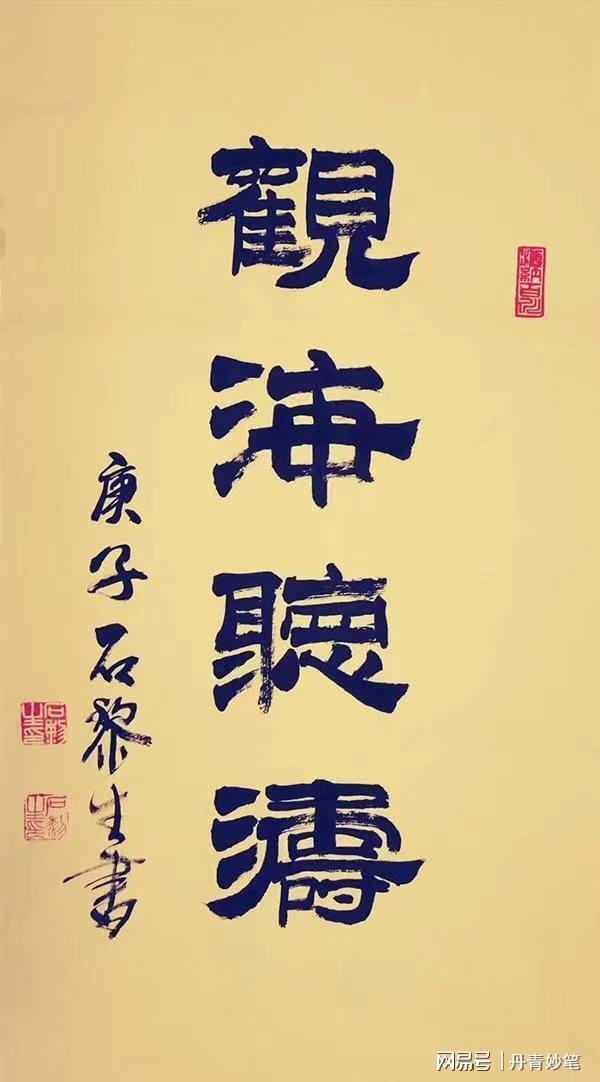 觀海聽濤
庚子石黎生書
网易号 | 丹青妙笔